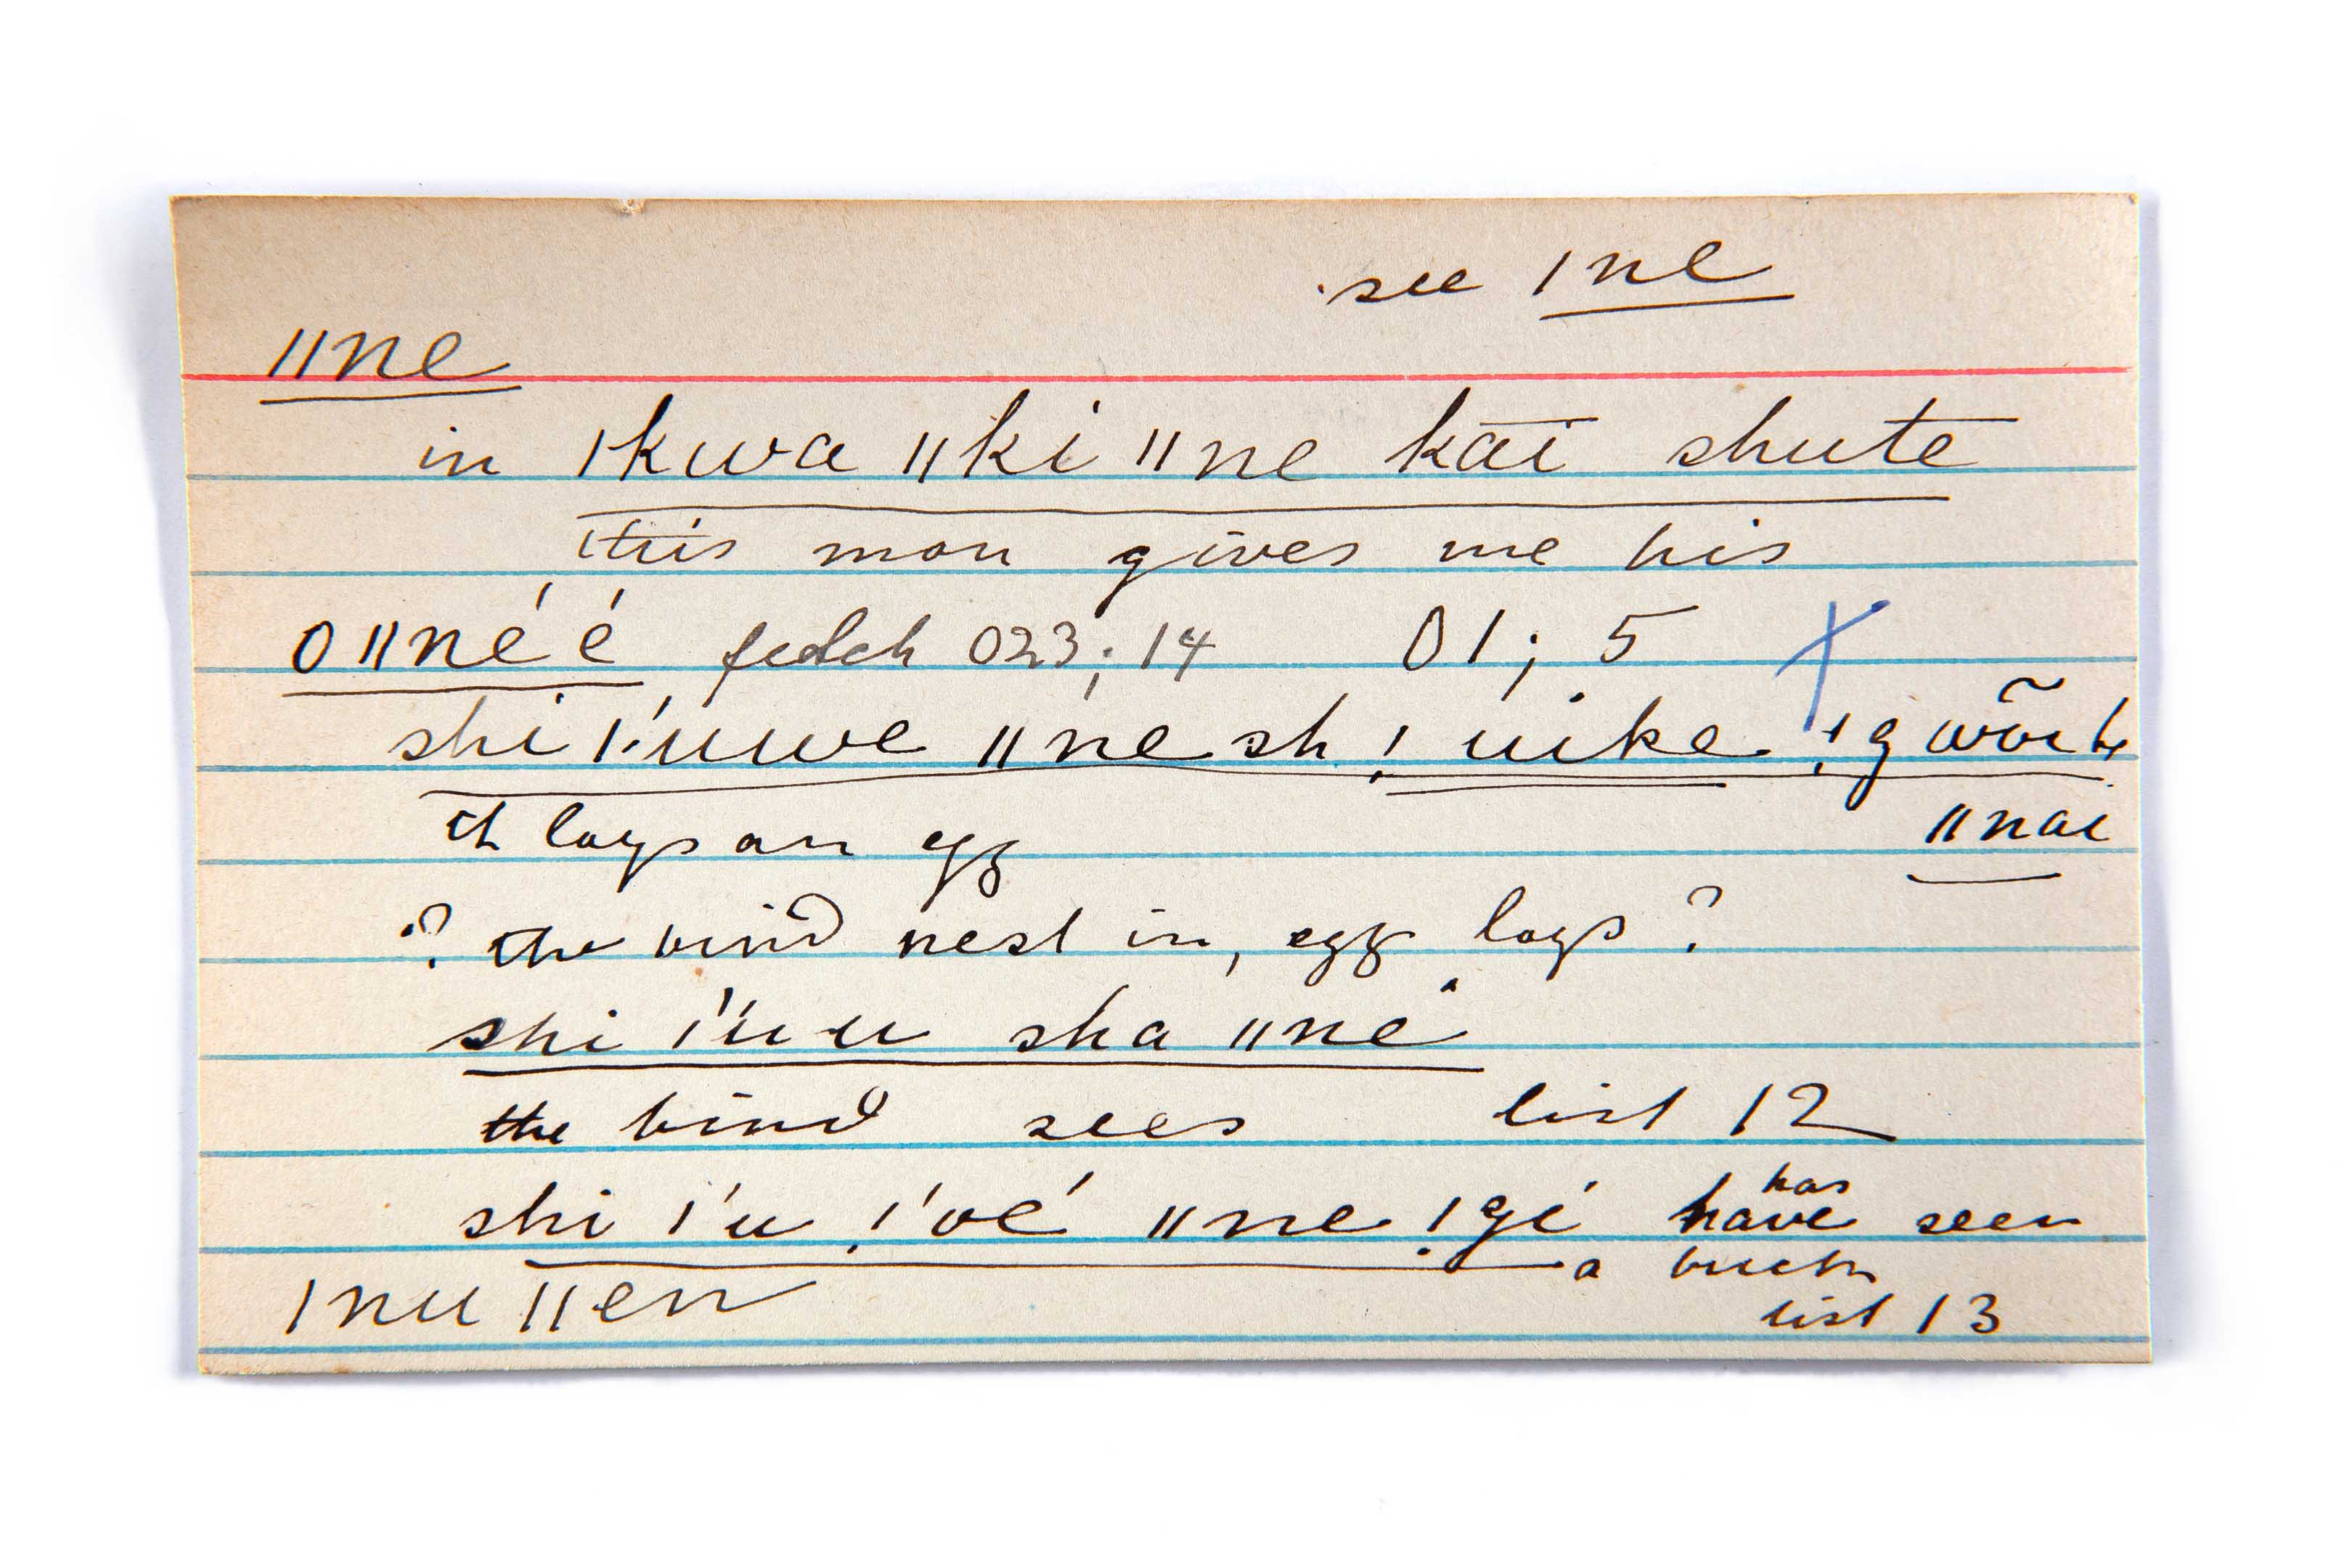 see ǀne
ǁne
in ǀkwa ǁki ǁne kāī shute
this man gives me his
oǁné'é fetch 023; 14 01; 5 X
shi ǀ'uuwe ǁne sh ! uike !gwõihe
it lays an egg ǁnai
? the bird nest in, egg lays ?
shi ǀ'úu sha ǁné
the bird sees list 12
shi ǀ'u !'óé ǁne !gí have has seen
a buck
ǀnuǁen list 13